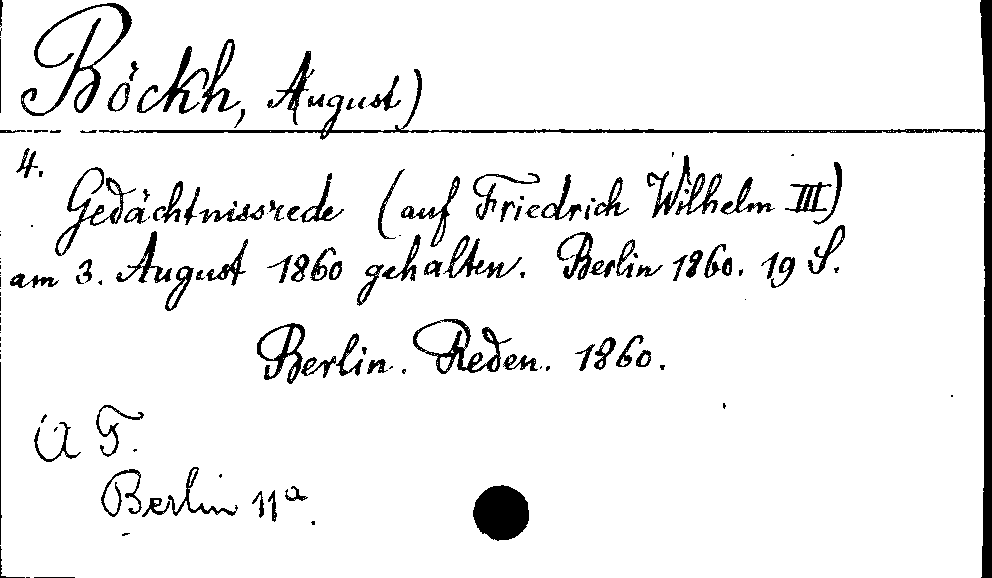 Böckh, August)
4.
Gedächtnissrede (auf Friedrich Wilhelm III)
am 3. August 1860 gehalten. Berlin 1860. 19 S.
Berlin. Reden. 1860.
Ü F.
Berlin 11a.